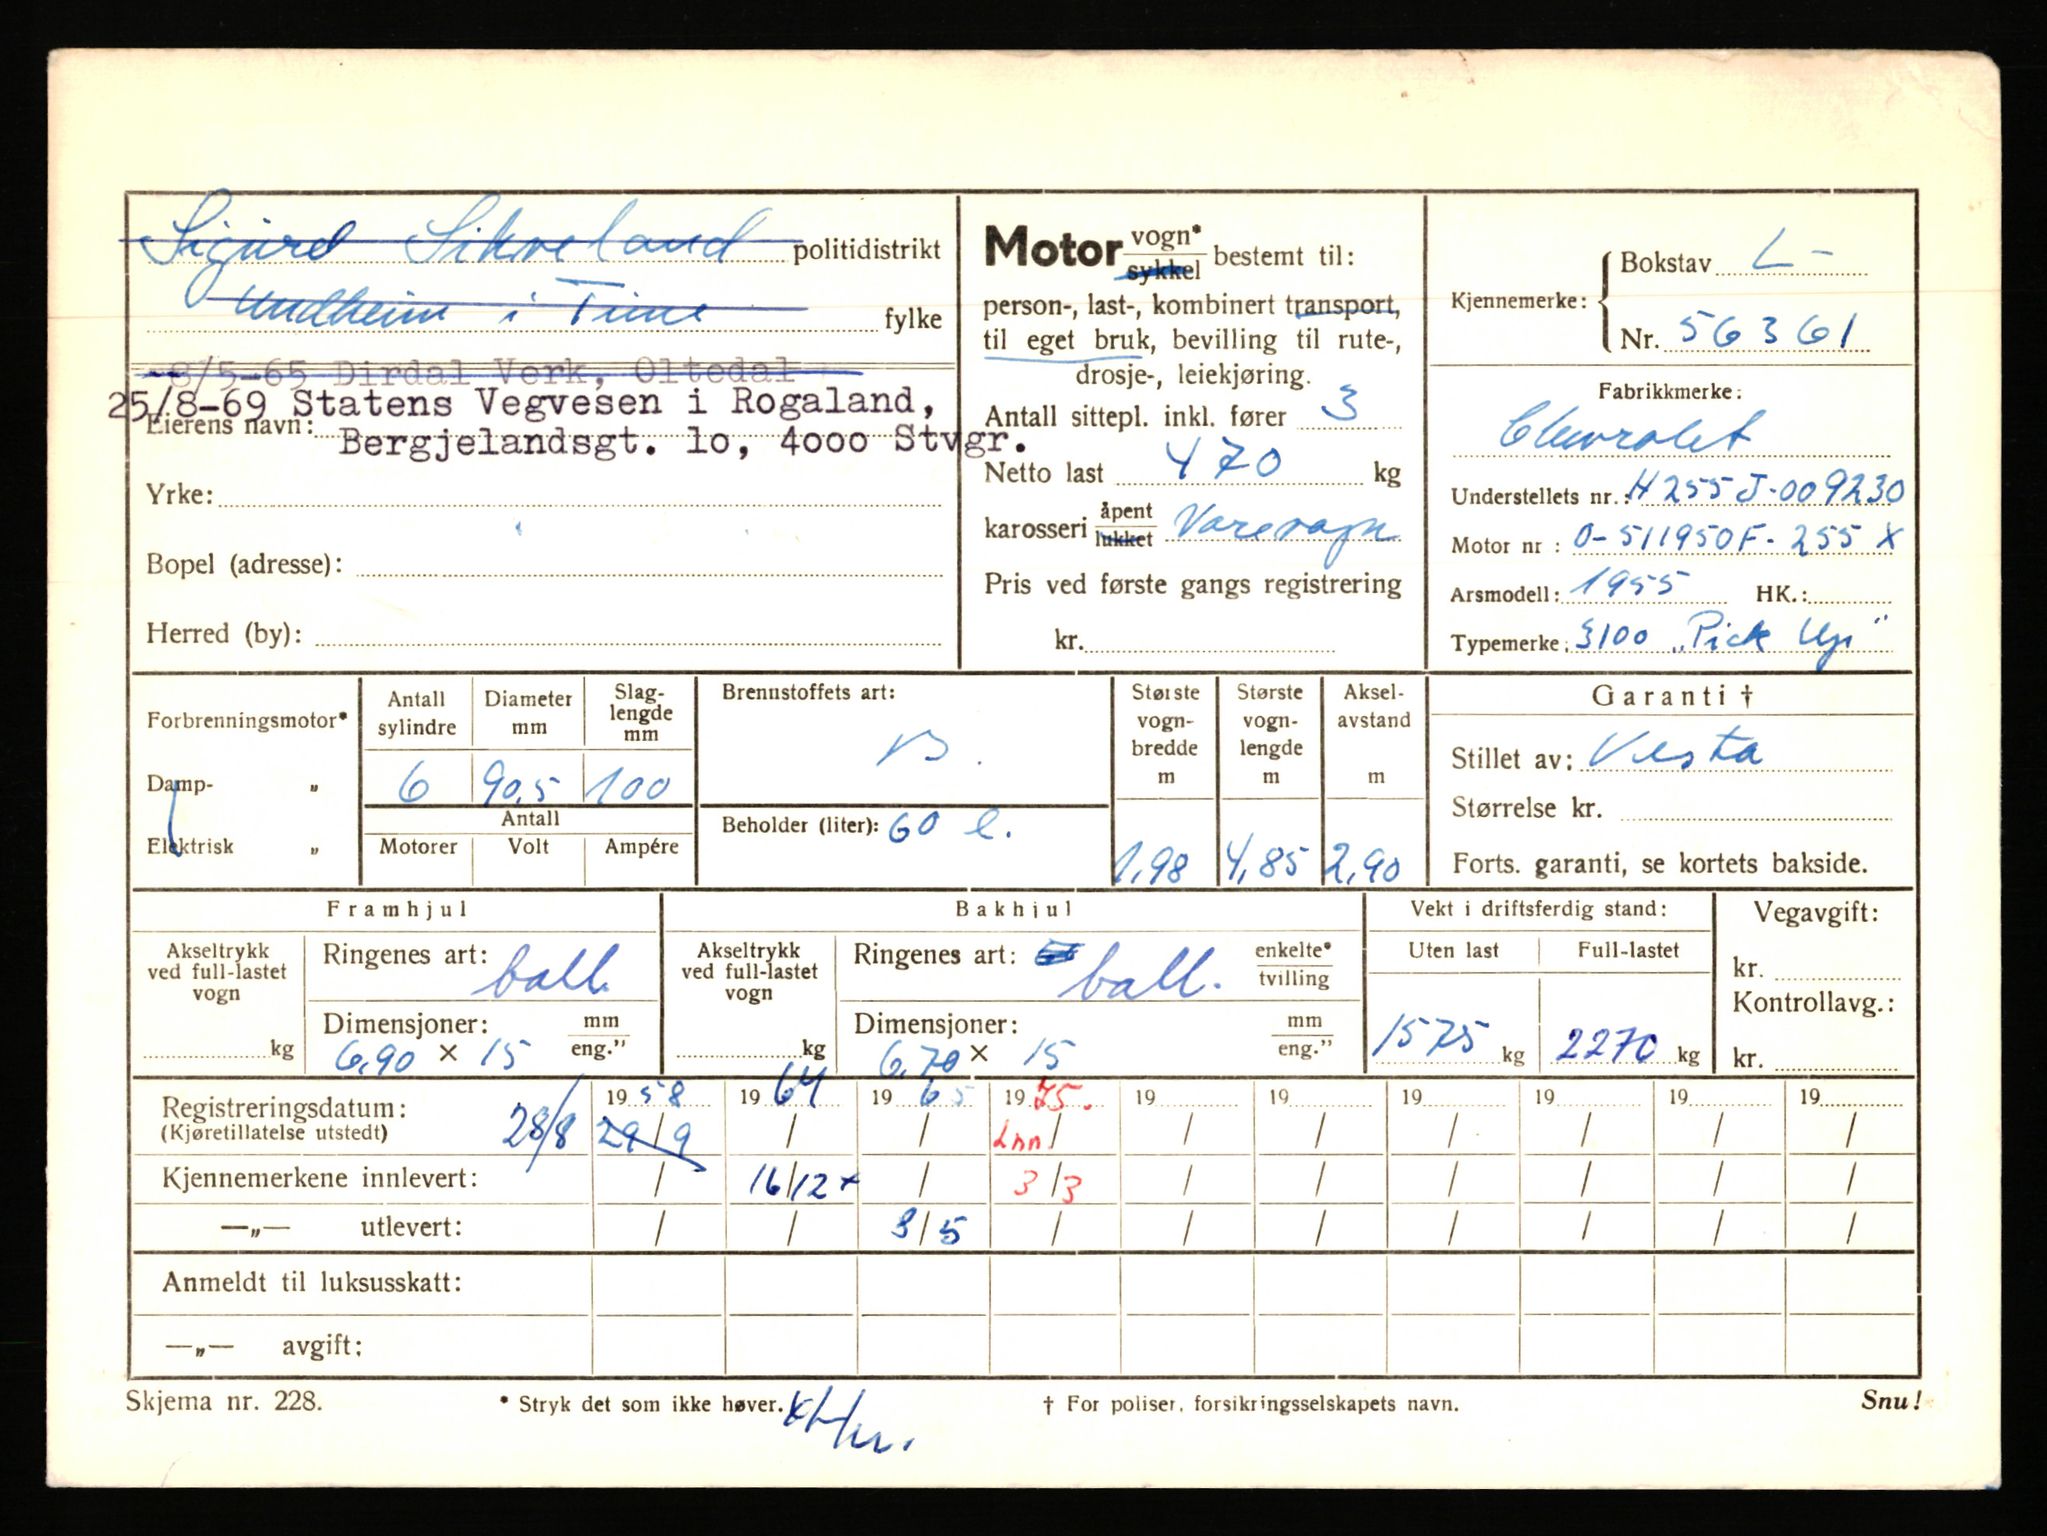 Sigurd Sikveland politidistrikt
Undheim i Time fylke
8/5-65 Dirdal Verk, Oltedal
25/8-69 Statens Vegvesen i Rogaland,
Eierens navn:
Bergjelandsgt. 10, 4000 Stvgr.
Yrke:
Bopel (adresse):
Herred (by):
Motor vogn* sykkel bestemt til:
person-, last-, kombinert transport,
til eget bruk, bevilling til rute-,
drosje-, leiekjøring.
Antall sittepl. inkl. fører 3
Netto last 470 kg
karosseri åpent lukket Varevogn
Pris ved første gangs registrering
kr.
Kjennemerke: Bokstav L-
Nr. 56361
Fabrikkmerke:
Chevrolet
Understellets nr.: H255J-009230
Motor nr : 0-511950F-255 X
Arsmodell: 1955 HK.:
Typemerke: 3100 „Pick Up"
Forbrenningsmotor*
Damp- „
Elektrisk „
Antall sylindre
Diameter mm
Slag-lengde mm
6 90,5 100
Antall
Motorer Volt Ampére
Brennstoffets art:
B.
Beholder (liter): 60 l.
Største vogn-bredde m
1,98
Største vogn-lengde m
4,85
Aksel-avstand m
2,90
Garanti †
Stillet av: Vesta
Størrelse kr.
Forts. garanti, se kortets bakside.
Framhjul
Akseltrykk ved full-lastet vogn
kg
Ringenes art: ball.
Dimensjoner: mm eng."
6,90 × 15
Bakhjul
Akseltrykk ved full-lastet vogn
kg
Ringenes art: ball. enkelte* tvilling
Dimensjoner: mm eng."
6,70 × 15
Vekt i driftsferdig stand:
Uten last Full-lastet
1575 kg 2270 kg
Vegavgift:
kr.
Kontrollavg.:
kr.
1958 1964 1965 1975. 19 19 19 19 19 19
Registreringsdatum:
(Kjøretillatelse utstedt) 28/8 29/9 / / Inn/ / / / / / /
Kjennemerkene innlevert: / 16/12 + / 3/3 / / / / / /
—„— utlevert: / / 8/5 / / / / / / /
Anmeldt til luksusskatt:
—„— avgift:
Skjema nr. 228.
* Stryk det som ikke høver.
† For poliser, forsikringsselskapets navn.
Snu!